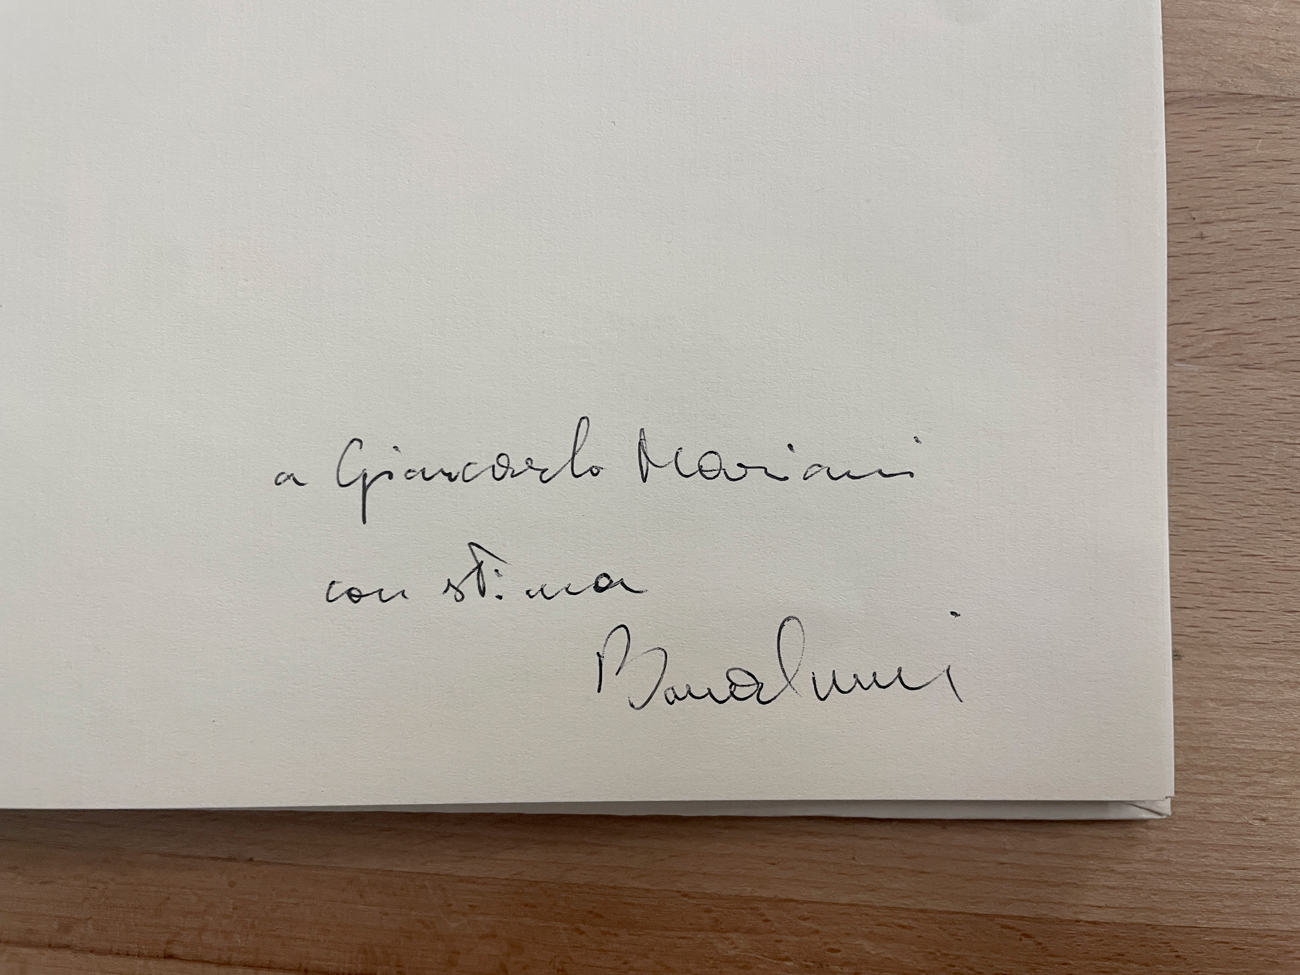 a Giancarlo Mariani
con stima